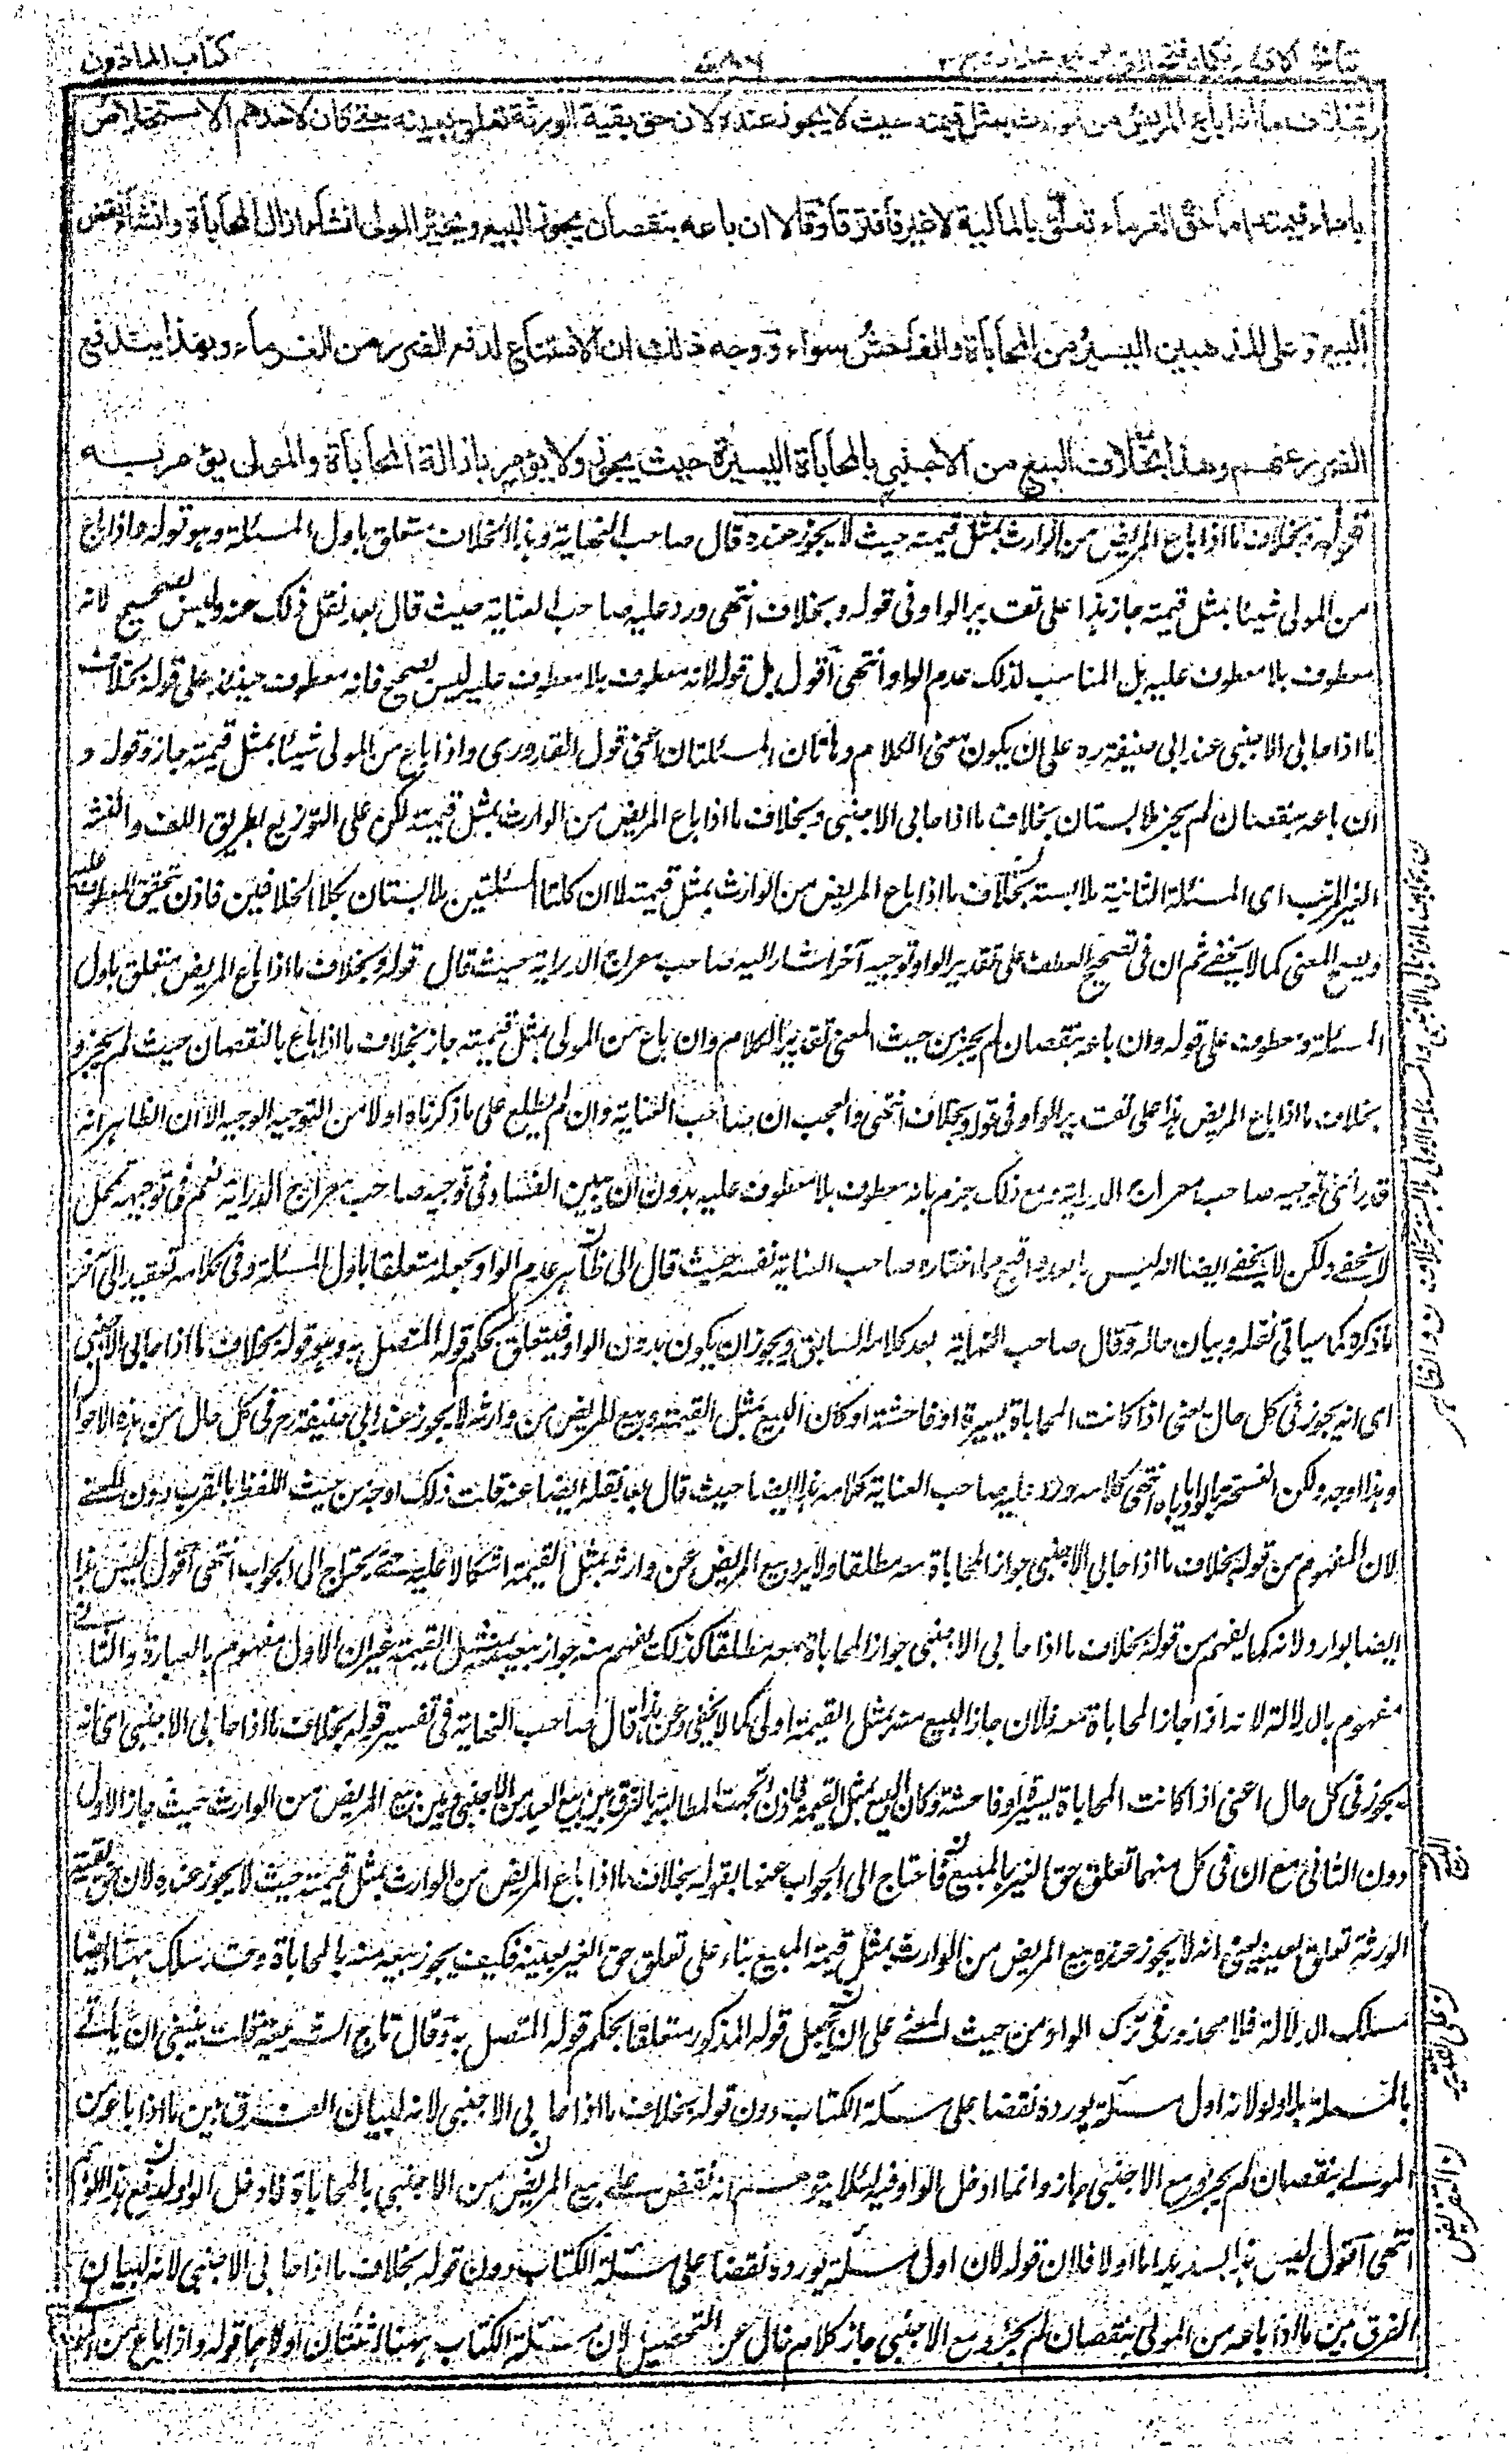 كتاب الماذون
بخلاف ما اذا باع المريض من الوارث بمثل قيمته حيث لا يجوز عنده لان حق بقية الورثة تعلق بعينه حتى كان لاحدهم الاستخلاص
باداء قيمته اما حق الغرماء تعلق بالمالية لا غير فافترقا وقالا ان باعه بنقصان يجوز البيع ويخير المولى ان شاء ازال المحاباة وان شاء نقض
البيع وعلى المذهبين اليسير من المحاباة والفاحش سواء ووجه ذلك ان الامتناع لدفع الضرر من الغرماء وبهذا يندفع
الضرر عنهم وهذا بخلاف البيع من الاجنبي بالمحاباة اليسيرة حيث يجوز ولا يؤمر بازالة المحاباة والمولى يؤمر به
قوله وبخلاف ما اذا باع المريض من الوارث بمثل قيمته حيث لا يجوز عنده قال صاحب النهاية وهذا الخلاف متعلق باول المسئلة وهو قوله واذا باع
من المولى شيئا بمثل قيمته جاز هذا على تقدير الواو في قوله وبخلاف انتهى ورد عليه صاحب العناية حيث قال بعد نقل ذلك عنه وليس بصحيح لانه
معطوف بلا معطوف عليه بل المناسب لذلك عدم الواو انتهى اقول بل قوله لانه معطوف بلا معطوف عليه ليس بصحيح فانه معطوف حينئذ على قوله بخلاف
ما اذا حابى الاجنبي عند ابي حنيفة ره على ان يكون معنى الكلام وهاتان المسئلتان اعني قول القدوري واذا باع من المولى شيئا بمثل قيمته جاز وقوله و
ان باعه بنقصان لم يجز ملابستان بخلاف ما اذا حابى الاجنبي وبخلاف ما اذا باع المريض من الوارث بمثل قيمته لكن على التوزيع بطريق اللف والنشر
الغير المرتب اى المسئلة الثانية ملابسة بخلاف ما اذا باع المريض من الوارث بمثل قيمته لا ان كلتا المسئلتين ملابستان بكلا الخلافين فاذن تحقق المعطوف عليه
ويصح المعنى كما لا يخفى ثم ان في تصحيح العطف على تقدير الواو توجيه آخر اشار اليه صاحب معراج الدراية حيث قال قوله وبخلاف ما اذا باع المريض متعلق باول
المسئلة ومعطوف على قوله وان باعه بنقصان لم يجز من حيث المعنى تقدير الكلام وان باع من المولى بمثل قيمته جاز بخلاف ما اذا باع بالنقصان حيث لم يجز و
بخلاف ما اذا باع المريض هذا على تقدير الواو في قوله وبخلاف انتهى والعجب ان صاحب العناية وان لم يطلع على ما ذكرناه اولا من التوجيه الوجيه الا ان الظاهر انه
قد رأى توجيه صاحب معراج الدراية ومع ذلك جزم بانه معطوف بلا معطوف عليه بدون ان يبين الفساد في توجيه صاحب معراج الدراية نعم في توجيهه تمحل
لا يخفى ولكن لا يخفى ايضا انه ليس باقبح مما اختاره صاحب العناية نفسه حيث قال الى ظاهر عدم الواو وجعله متعلقا باول المسئلة وفي كلامه تعقيد الى آخر
ما ذكره كما سياتي نقله وبيان حاله وقال صاحب النهاية بعد كلامه السابق ويجوز ان يكون بدون الواو فيتعلق بحكم قوله المتصل به وهو قوله بخلاف ما اذا حابى الاجنبي
اى انه يجوز في كل حال يعني اذا كانت المحاباة يسيرة او فاحشة او كان البيع بمثل القيمة وبيع المريض من وارثه لا يجوز عند ابي حنيفة ره في كل حال من هذه الاحوال
وهذا اوجه ولكن النسخة بالواو يأباه انتهى كلامه ورد عليه صاحب العناية كلامه هذا ايضا حيث قال بعد نقله ايضا عنه قلت ذلك اوجه من حيث اللفظ بالقرب دون المعنى
لان المفهوم من قوله بخلاف ما اذا حابى الاجنبي جواز المحاباة معه مطلقا ولا يرد بيع المريض من وارثه بمثل القيمة اشكالا عليه حتى يحتاج الى الجواب انتهى اقول ليس هذا
ايضا بوارد لانه كما يفهم من قوله بخلاف ما اذا حابى الاجنبي جواز المحاباة معه مطلقا كذلك يفهم منه جواز بيعه بمثل القيمة غير ان الاول مفهوم بالعبارة والثاني
مفهوم بالدلالة لانه اذا جاز المحاباة معه فلان جاز البيع منه بمثل القيمة اولى كما لا يخفى وعن هذا قال صاحب النهاية في تفسير قوله بخلاف ما اذا حابى الاجنبي اى انه
يجوز في كل حال اعني اذا كانت المحاباة يسيرة او فاحشة وكان البيع بمثل القيمة فاذن اتجهت المطالبة بالفرق بين بيع العبد من الاجنبي وبين بيع المريض من الوارث حيث جاز الاول
دون الثاني مع ان في كل منهما تعلق حق الغير بالمبيع فاحتاج الى الجواب عنها بقوله بخلاف ما اذا باع المريض من الوارث بمثل قيمته حيث لا يجوز عنده لان حق بقية
الورثة تعلق بعينه يعني انه لا يجوز عنده بيع المريض من الوارث بمثل قيمة المبيع بناء على تعلق حق الغير بعينه فكيف يجوز بيعه منه بالمحاباة وحق سلك ههنا ايضا
مسلك الدلالة فلا محذور في ترك الواو من حيث المعنى على ان يجعل قوله المذكور متعلقا بحكم قوله المتصل به وقال تاج الشريعة قلت ينبغي ان ياتي
بالمسئلة بلا واو لانه اول مسئلة يورده نقضا على مسئلة الكتاب دون قوله بخلاف ما اذا حابى الاجنبي لانه لبيان الفرق بين ما اذا باعه من
المولى بنقصان لم يجز ومع الاجنبي جاز وانما ادخل الواو فيه لئلا يتوهم انه نقض على بيع المريض من الاجنبي بالمحاباة فادخل الواو لدفع هذا الوهم
انتهى اقول ليس هذا بسديد اما اولا فلان قوله لان اول مسئلة يورده نقضا على مسئلة الكتاب دون قوله بخلاف ما اذا حابى الاجنبي لانه لبيان
الفرق بين ما اذا باعه من المولى بنقصان لم يجز ومع الاجنبي جاز كلام خال عن التحصيل لان مسئلة الكتاب ههنا اثنتان اولاهما قوله واذا باع من المولى